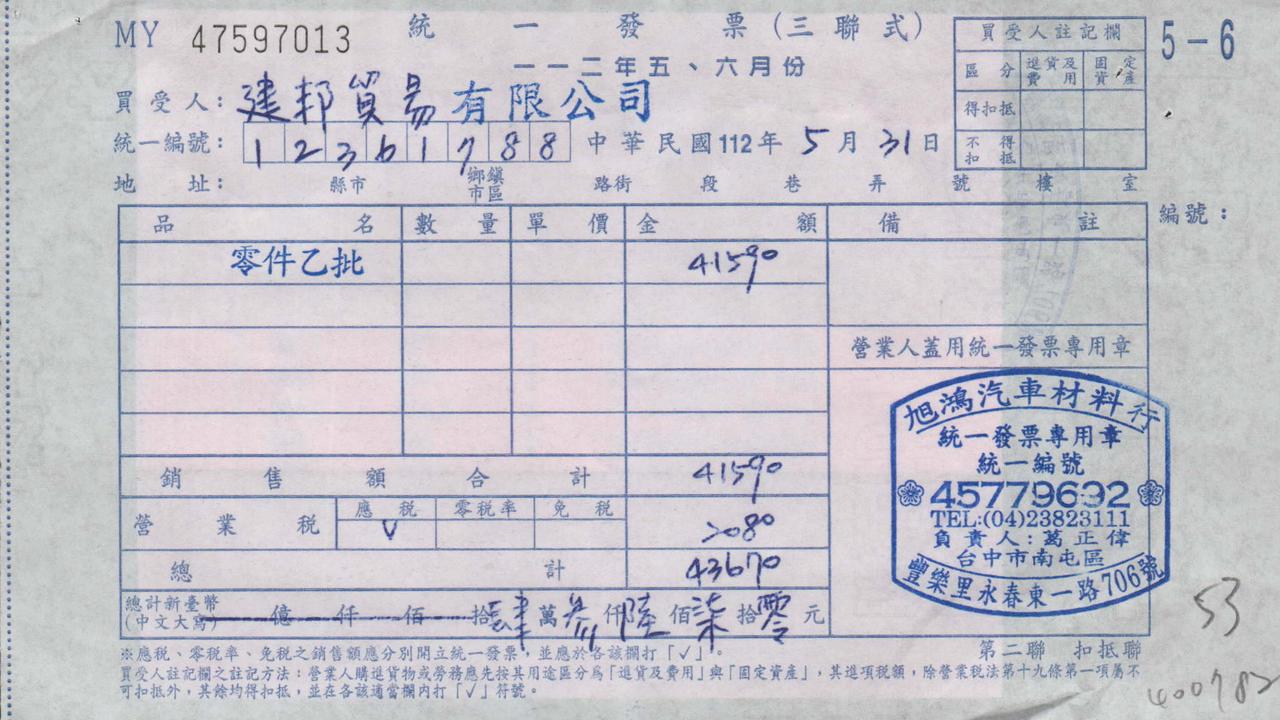 MY 47597013 統一發票(三聯式)
一一二年五、六月份
5-6
買受人註記欄
區分 進貨及費用 固定資產
得扣抵
不得扣抵
買受人：建邦貿易有限公司
統一編號：12361788 中華民國112年5月31日
地址： 縣市 鄉鎮市區 路街 段 巷 弄 號 樓 室
編號：
品名 數量 單價 金額 備註
零件乙批 41590
營業人蓋用統一發票專用章
銷售額合計 41590
營業稅 應稅 零稅率 免稅
V 2080
總計 43670
總計新臺幣(中文大寫) 億仟佰拾肆萬參仟陸佰柒拾零元
旭鴻汽車材料行
統一發票專用章
統一編號
45779692
TEL:(04)23823111
負責人：葛正偉
台中市南屯區
豐樂里永春東一路706號
53
※應稅、零稅率、免稅之銷售額應分別開立統一發票，並應於各該欄打「✓」。
第二聯 扣抵聯
買受人註記欄之註記方法：營業人購進貨物或勞務應先按其用途區分為「進貨及費用」與「固定資產」，其進項稅額，除營業稅法第十九條第一項屬不
可扣抵外，其餘均得扣抵，並在各該適當欄內打「✓」符號。